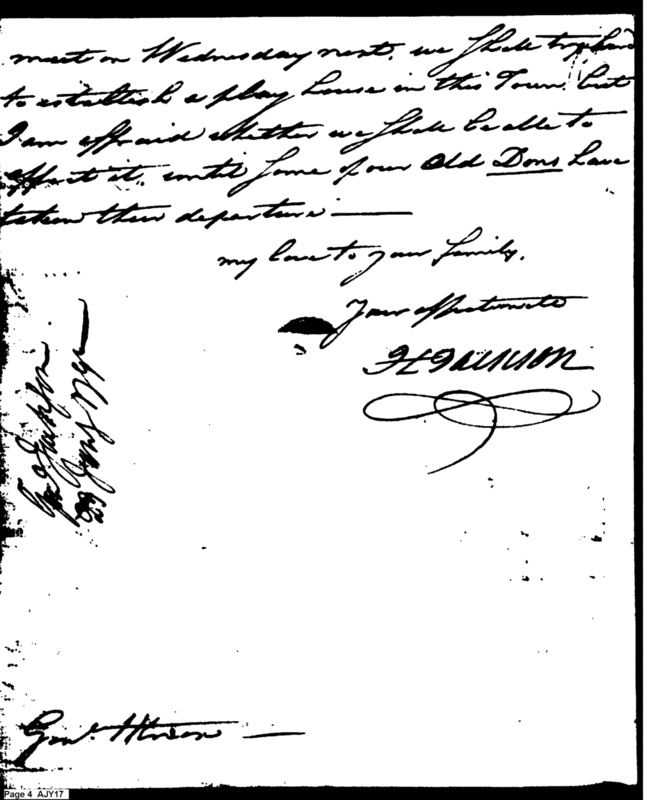 meet on Wednesday next. we shall try hard
to establish a play house in this Town, but
I am affraid whether we shall be able to
effect it, until some of our Old Dons have
taken their departure —
my love to your family.
Your affectionate
H Jackson
Genl. Jackson
Genl. Henry
Page 4 AJY17